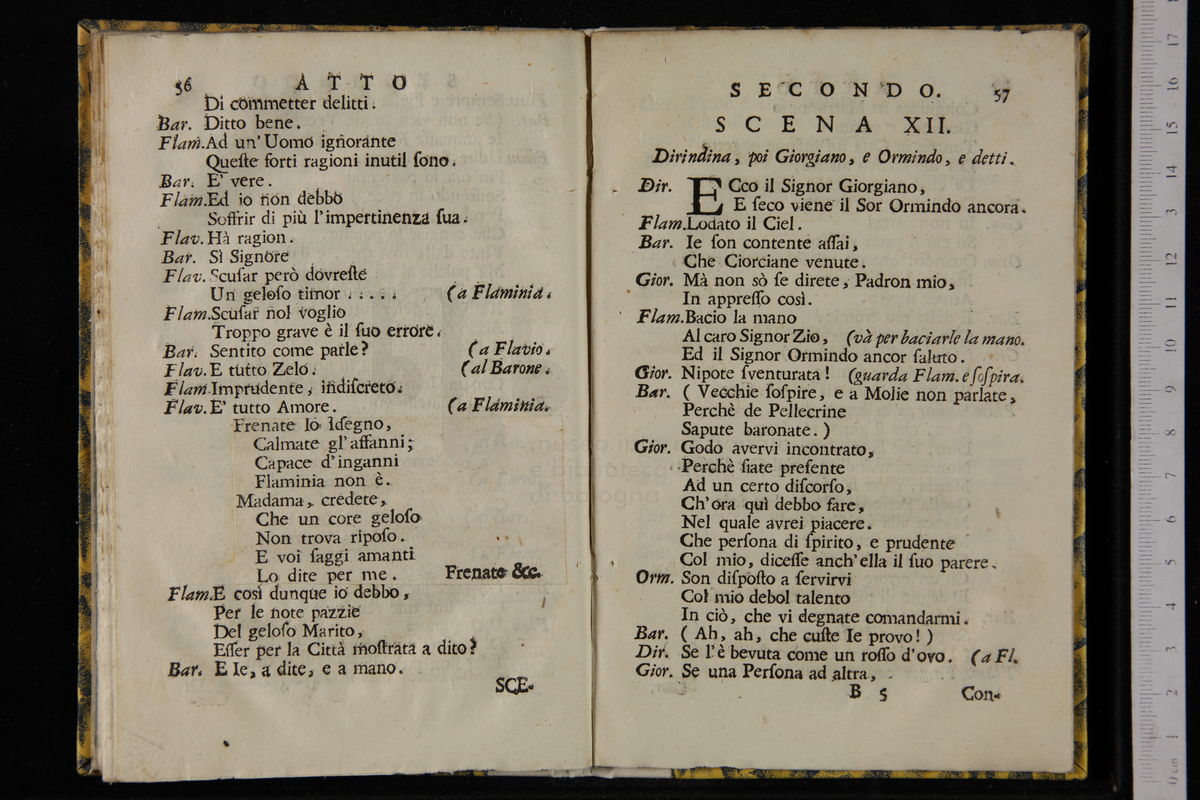 56 ATTO
Di commetter delitti.
Bar. Ditto bene.
Flam. Ad un' Uomo ignorante
Queſte forti ragioni inutil ſono.
Bar. E' vere.
Flam. Ed io non debbo
Soffrir di più l'impertinenza ſua.
Flav. Hà ragion.
Bar. Sì Signore
Flav. Scuſar però dovreſte
Un geloſo timor ..... (a Flaminia.
Flam. Scuſar nol voglio
Troppo grave è il ſuo errore.
Bar. Sentito come parle? (a Flavio.
Flav. E tutto Zelo. (al Barone.
Flam. Imprudente, indiſcreto.
Flav. E' tutto Amore. (a Flaminia.
Frenate lo ſdegno,
Calmate gl'affanni;
Capace d'inganni
Flaminia non è.
Madama, credete,
Che un core geloſo
Non trova ripoſo.
E voi ſaggi amanti
Lo dite per me. Frenate &c.
Flam. E così dunque io debbo,
Per le note pazzie
Del geloſo Marito,
Eſſer per la Città moſtrata a dito?
Bar. E Ie, a dite, e a mano.
SCE-
SECONDO. 57
SCENA XII.
Dirindina, poi Giorgiano, e Ormindo, e detti.
Dir. ECco il Signor Giorgiano,
E ſeco viene il Sor Ormindo ancora.
Flam. Lodato il Ciel.
Bar. Ie ſon contente aſſai,
Che Ciorciane venute.
Gior. Mà non sò ſe direte, Padron mio,
In appreſſo così.
Flam. Bacio la mano
Al caro Signor Zio, (và per baciarle la mano.
Ed il Signor Ormindo ancor ſaluto.
Gior. Nipote ſventurata! (guarda Flam. e ſoſpira.
Bar. (Vecchie ſoſpire, e a Molie non parlate,
Perchè de Pellecrine
Sapute baronate.)
Gior. Godo avervi incontrato,
Perchè ſiate preſente
Ad un certo diſcorſo,
Ch'ora quì debbo fare,
Nel quale avrei piacere.
Che perſona di ſpirito, e prudente
Col mio, diceſſe anch'ella il ſuo parere.
Orm. Son diſpoſto a ſervirvi
Col mio debol talento
In ciò, che vi degnate comandarmi.
Bar. (Ah, ah, che cuſte Ie provo!)
Dir. Se l'è bevuta come un roſſo d'ovo. (a Fl.
Gior. Se una Perſona ad altra,
B 5 Con-